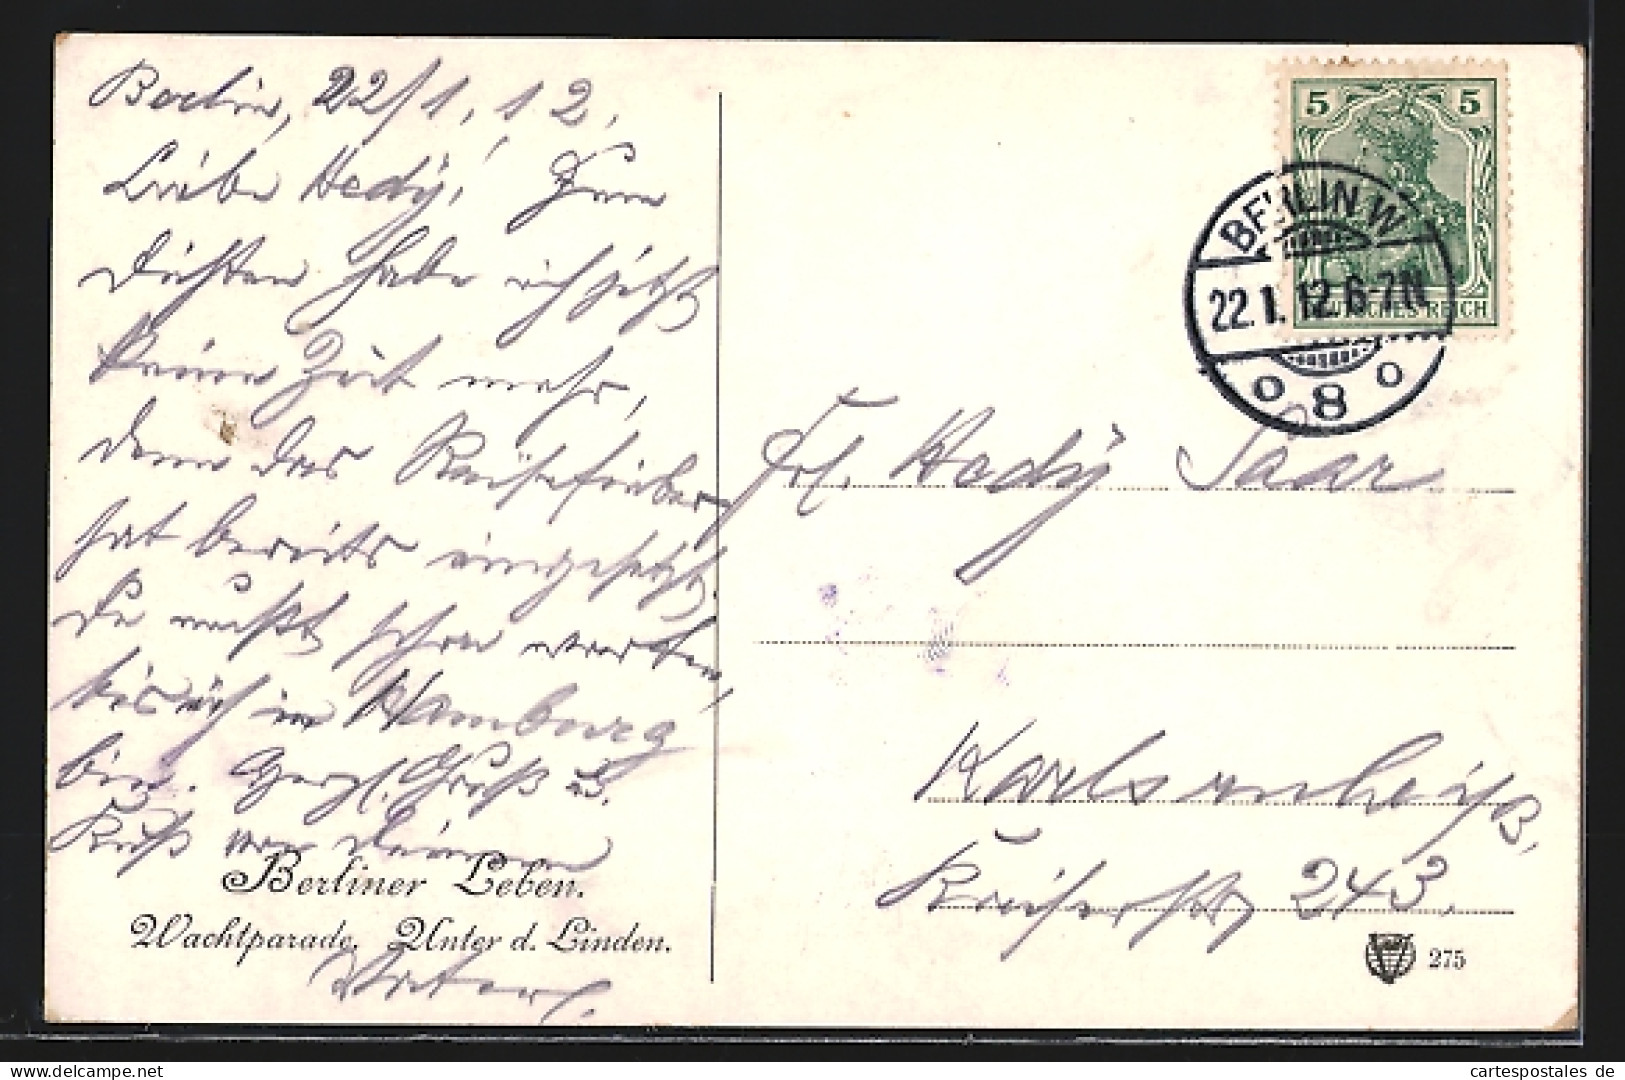 Berlin, 22/1. 12.
Liebe Hedÿ! Zum
Dichten habe ich jetzt
keine Zeit mehr,
denn das Reisefieber
hat bereits eingesetzt.
Du mußt schon warten,
bis ich in Hamburg
bin. Herzl. Gruß u.
Kuß von Deinem
Berliner Leben.
Wachtparade. Unter d. Linden.
Vaterl.
5 5
DEUTSCHES REICH
BERLIN W
22.1.12.6-7N
o 8 o
Frl. Hedÿ Saar
Karlsruhe
Kaiserstr 243.
275
cartespostales.de